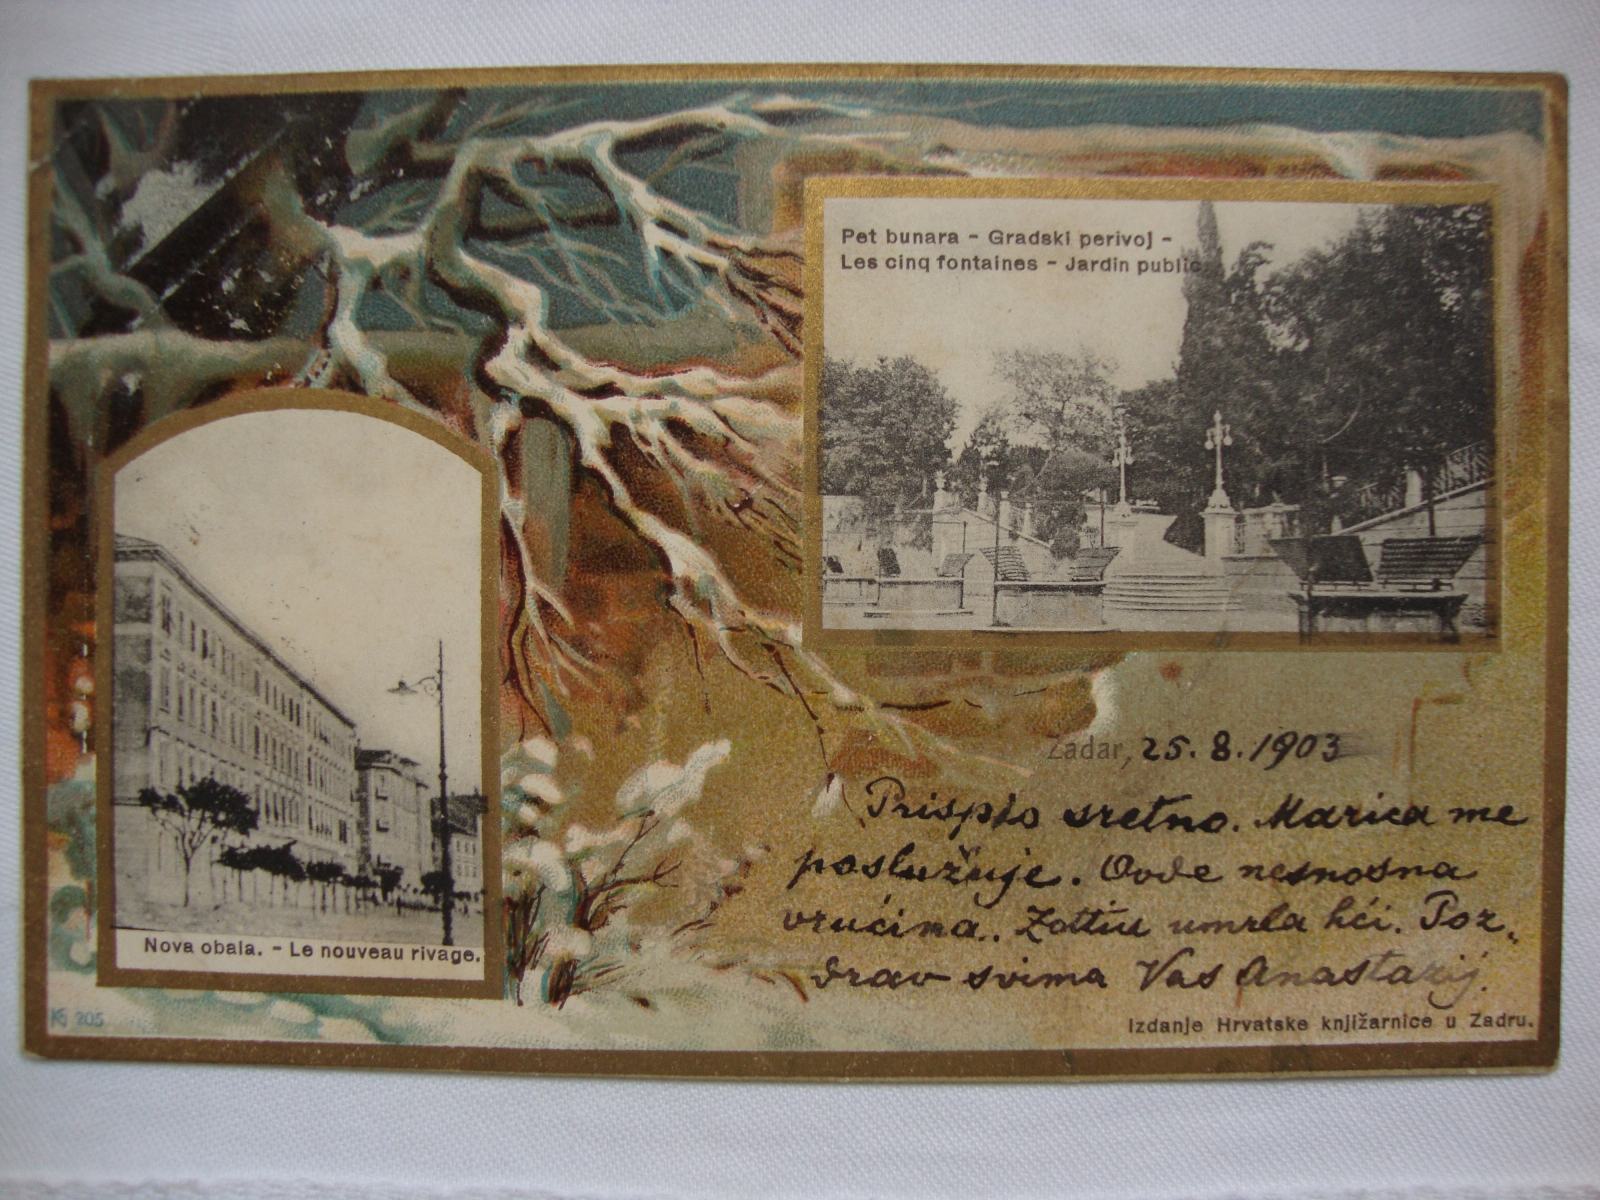 Pet bunara - Gradski perivoj -
Les cinq fontaines - Jardin public.
Nova obala. - Le nouveau rivage.
Zadar, 25. 8. 1903
Prispio sretno. Marica me
poslužuje. Ovde nesnosna
vrućina. Zottiu umrla hći. Poz,
drav svima Vas Anastazij.
Izdanje Hrvatske knjižarnice u Zadru.
205